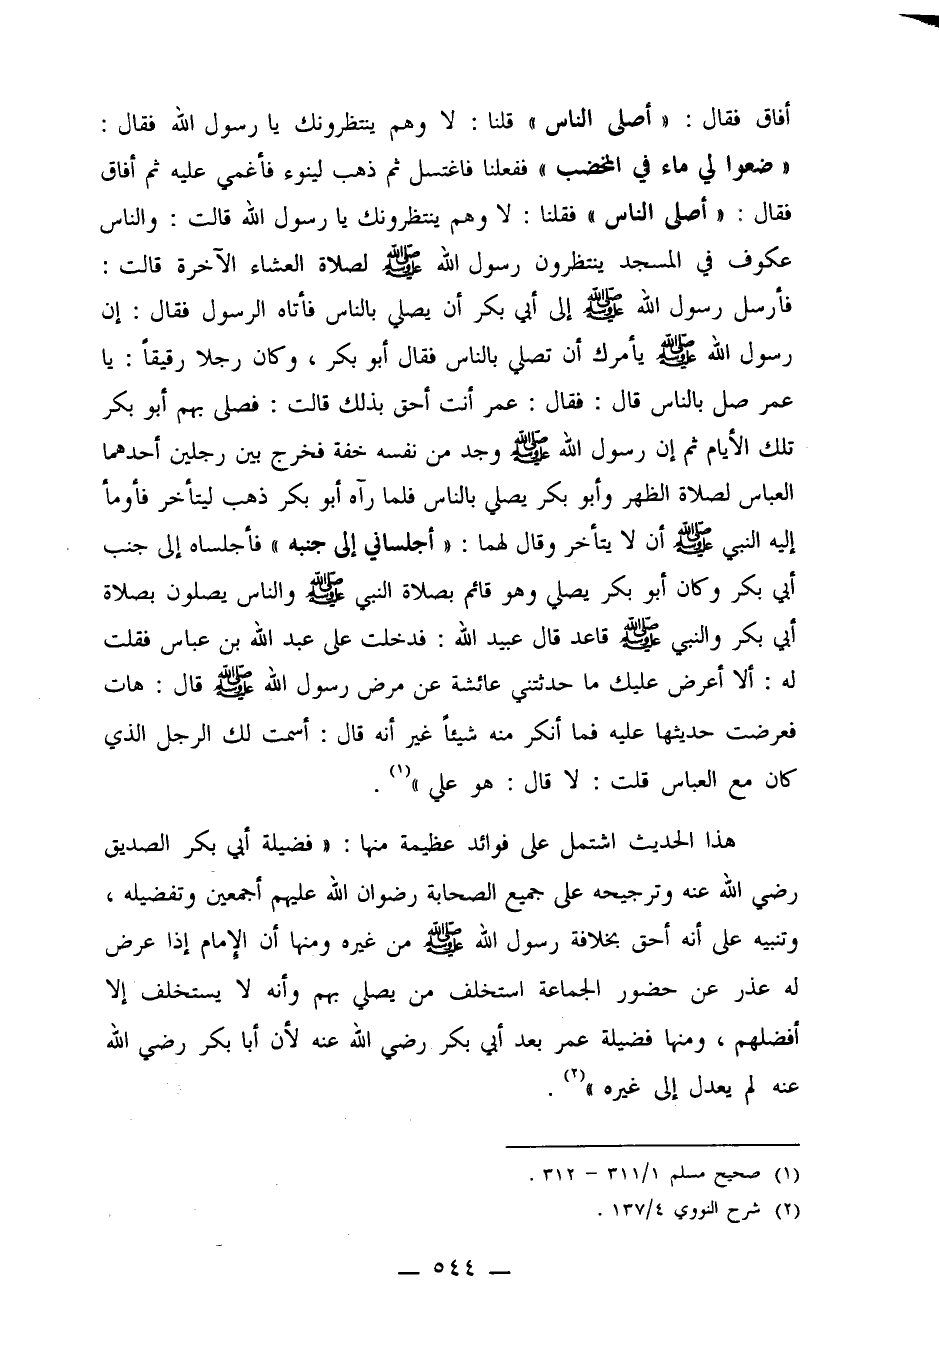 أفاق فقال : « أصلى الناس » قلنا : لا وهم ينتظرونك يا رسول الله فقال :
« ضعوا لي ماء في المخضب » ففعلنا فاغتسل ثم ذهب لينوء فأغمي عليه ثم أفاق
فقال : « أصلى الناس » فقلنا : لا وهم ينتظرونك يا رسول الله قالت : والناس
عكوف في المسجد ينتظرون رسول الله ﷺ لصلاة العشاء الآخرة قالت :
فأرسل رسول الله ﷺ إلى أبي بكر أن يصلي بالناس فأتاه الرسول فقال : إن
رسول الله ﷺ يأمرك أن تصلي بالناس فقال أبو بكر ، وكان رجلا رقيقاً : يا
عمر صل بالناس قال : فقال : عمر أنت أحق بذلك قالت : فصلى بهم أبو بكر
تلك الأيام ثم إن رسول الله ﷺ وجد من نفسه خفة فخرج بين رجلين أحدهما
العباس لصلاة الظهر وأبو بكر يصلي بالناس فلما رآه أبو بكر ذهب ليتأخر فأومأ
إليه النبي ﷺ أن لا يتأخر وقال لهما : « أجلساني إلى جنبه » فأجلساه إلى جنب
أبي بكر وكان أبو بكر يصلي وهو قائم بصلاة النبي ﷺ والناس يصلون بصلاة
أبي بكر والنبي ﷺ قاعد قال عبيد الله : فدخلت على عبد الله بن عباس فقلت
له : ألا أعرض عليك ما حدثتني عائشة عن مرض رسول الله ﷺ قال : هات
فعرضت حديثها عليه فما أنكر منه شيئاً غير أنه قال : أسمت لك الرجل الذي
كان مع العباس قلت : لا قال : هو علي »(١) .
هذا الحديث اشتمل على فوائد عظيمة منها : « فضيلة أبي بكر الصديق
رضي الله عنه وترجيحه على جميع الصحابة رضوان الله عليهم أجمعين وتفضيله ،
وتنبيه على أنه أحق بخلافة رسول الله ﷺ من غيره ومنها أن الإمام إذا عرض
له عذر عن حضور الجماعة استخلف من يصلي بهم وأنه لا يستخلف إلا
أفضلهم ، ومنها فضيلة عمر بعد أبي بكر رضي الله عنه لأن أبا بكر رضي الله
عنه لم يعدل إلى غيره »(٢) .
(١) صحيح مسلم ٣١١/١ – ٣١٢ .
(٢) شرح النووي ١٣٧/٤ .
— ٥٤٤ —